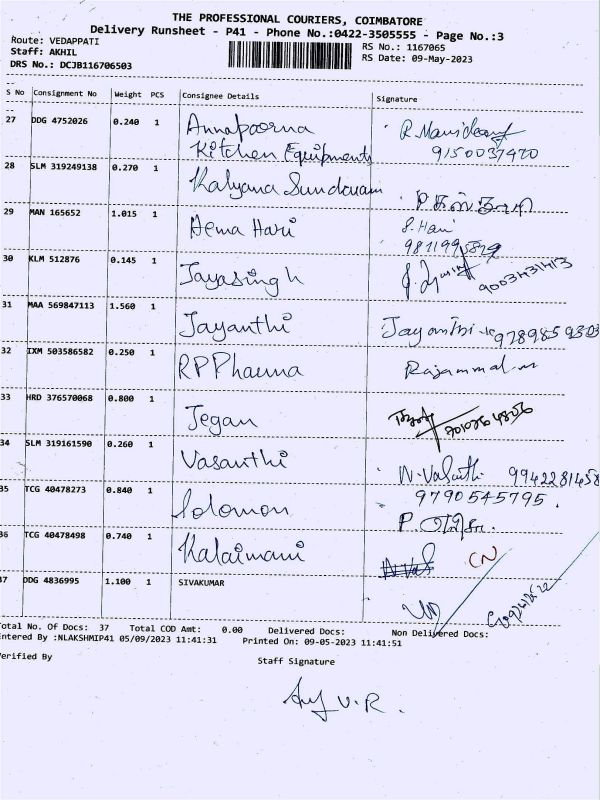 THE PROFESSIONAL COURIERS, COIMBATORE
Delivery Runsheet - P41 - Phone No.:0422-3505555 - Page No.:3
Route: VEDAPPATI
Staff: AKHIL
DRS No.: DCJB116706503
RS No.: 1167065
RS Date: 09-May-2023
S No Consignment No Weight PCS Consignee Details Signature
27 DDG 4752026 0.240 1 Annapoorna
Kitchen Equipments
9150037470
28 SLM 319249138 0.270 1 Kalyana Sundaram
29 MAN 165652 1.015 1 Hema Hari S. Hari
30 KLM 512876 0.145 1 Jayasingh 9003431413
31 MAA 569847113 1.560 1 Jayanthi Jayanthi
32 IXM 503586582 0.250 1 RP Pharma Rajammal
33 HRD 376570068 0.800 1 Jegan
34 SLM 319161590 0.260 1 Vasanthi N. Vasanthi 9942281458
35 TCG 40478273 0.840 1 Solomon 9790545795
36 TCG 40478498 0.740 1 Kalaimani CN
37 DDG 4836995 1.100 1 SIVAKUMAR
Total No. Of Docs: 37 Total COD Amt: 0.00 Delivered Docs: Non Delivered Docs:
Entered By :NLAKSHMIP41 05/09/2023 11:41:31 Printed On: 09-05-2023 11:41:51
Verified By Staff Signature
V.R.